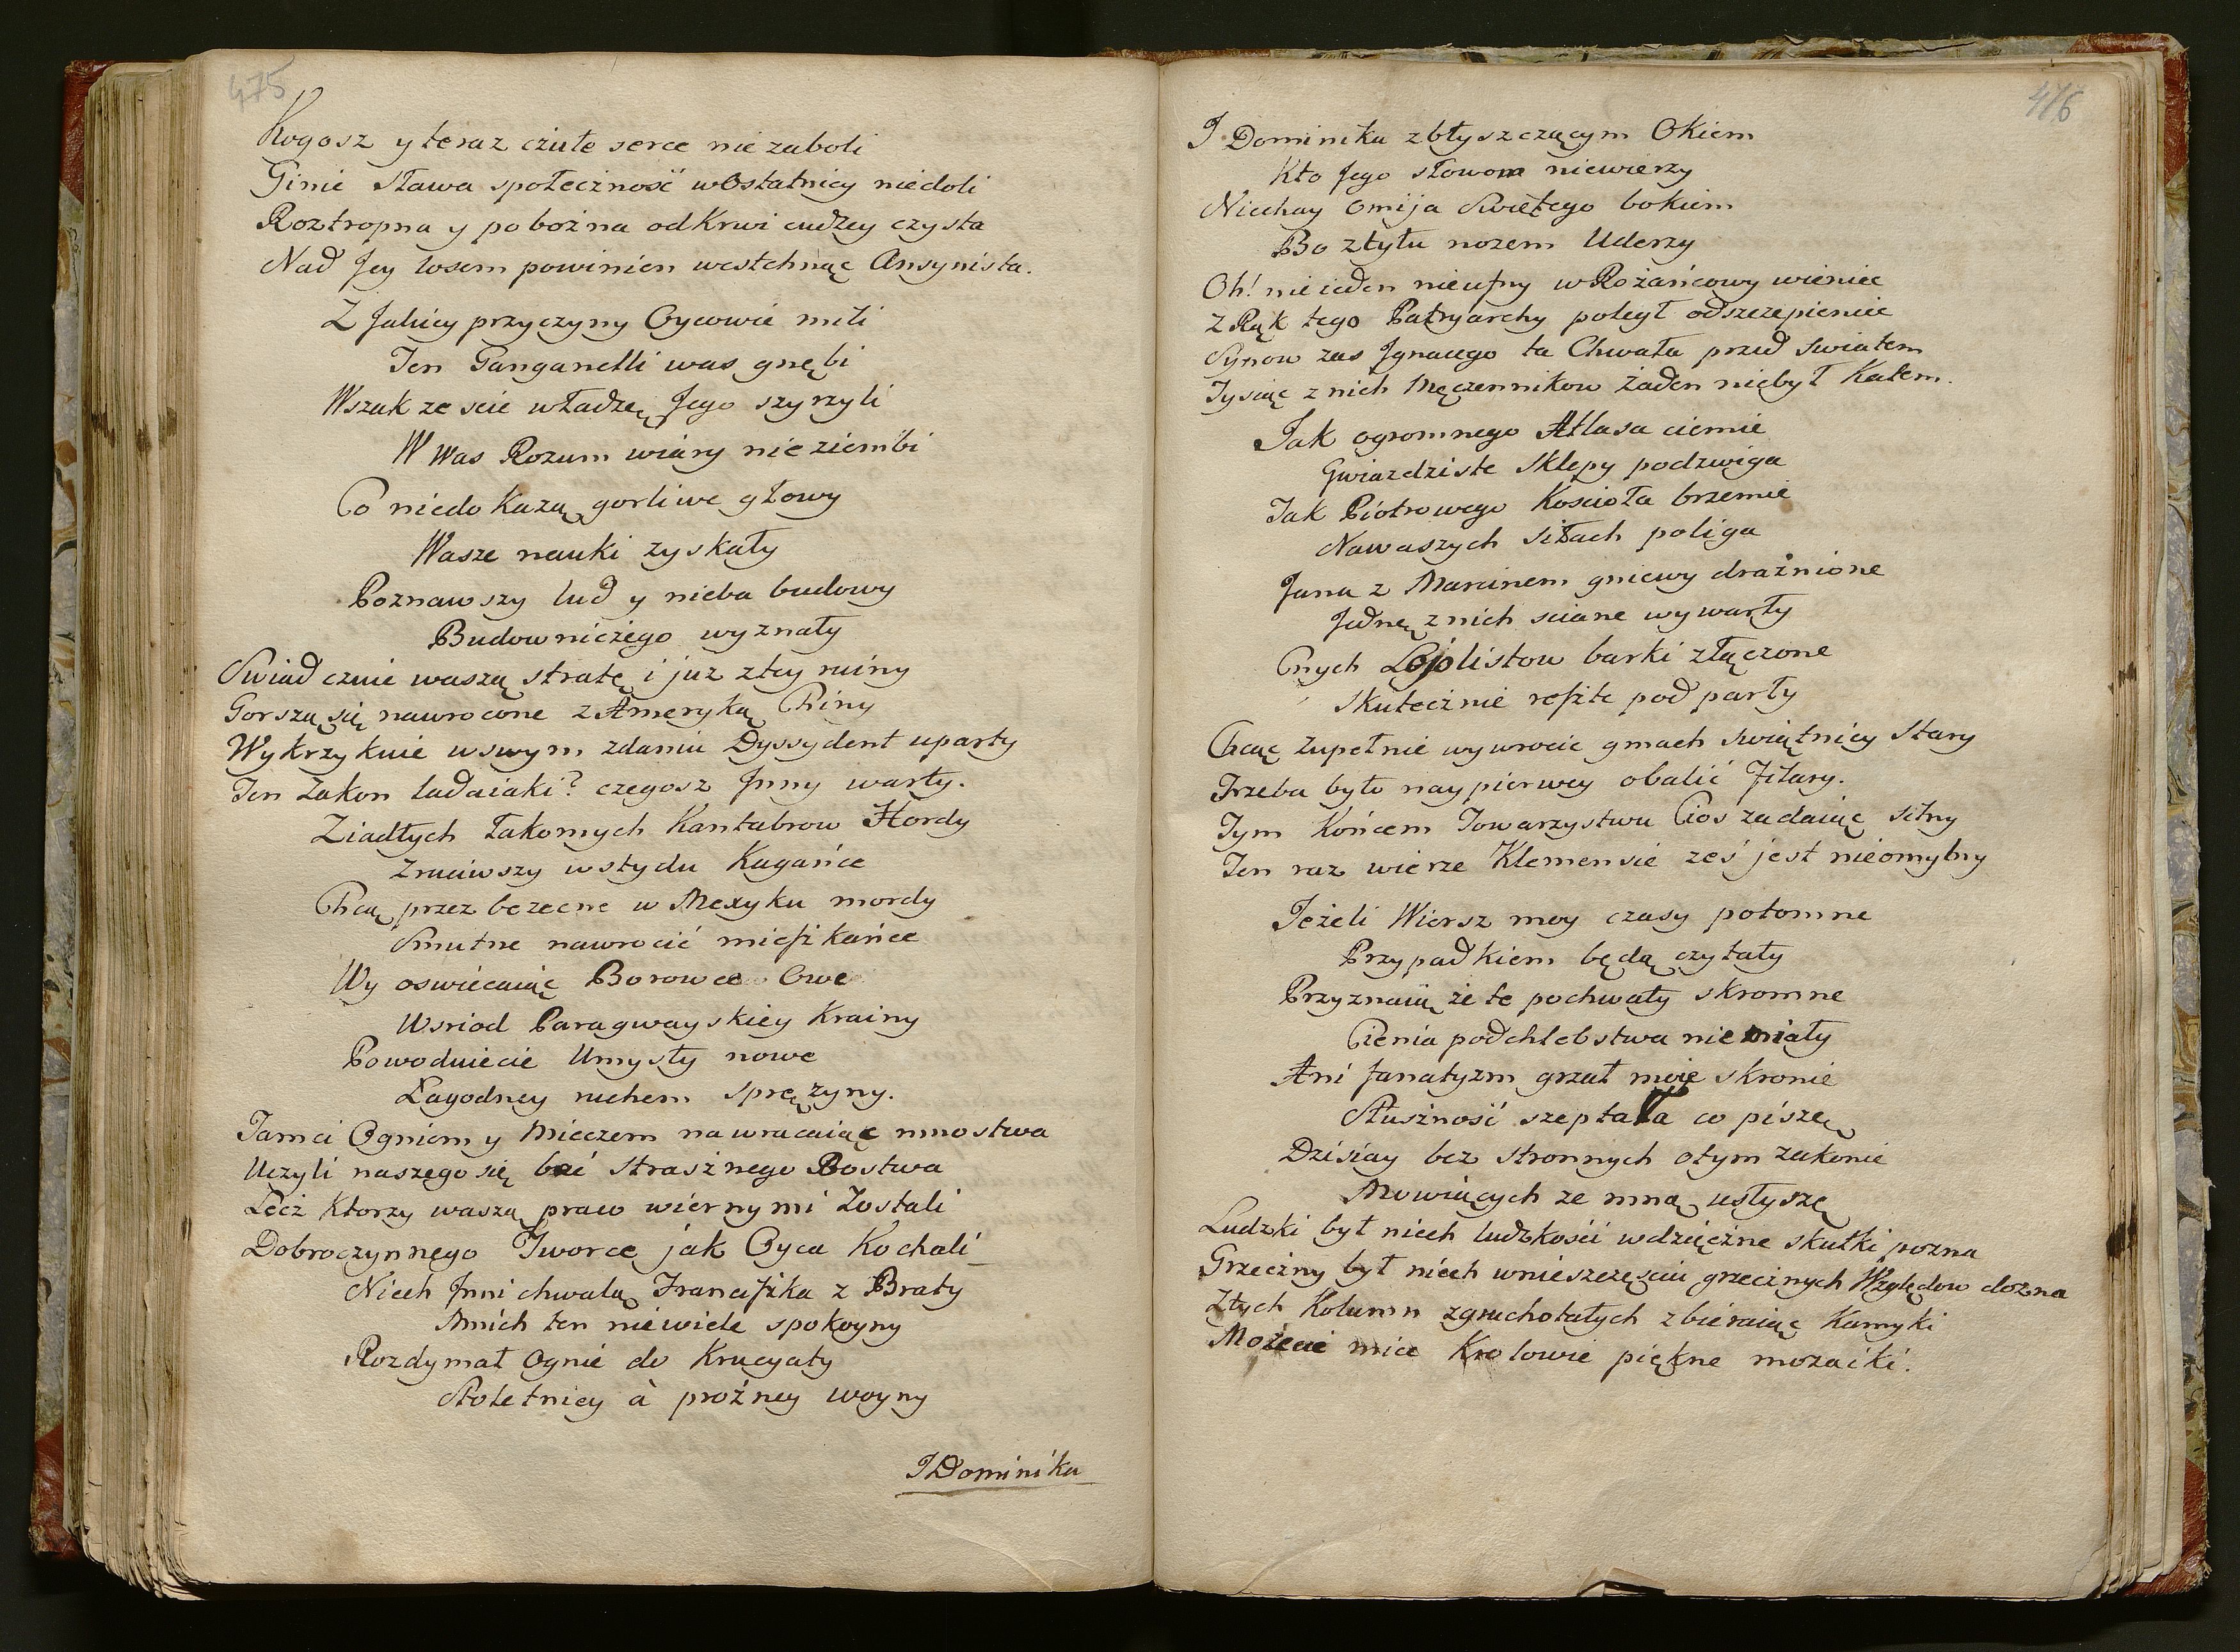 475
Kogosz y teraz czułe serce nie zaboli
Ginie Sława społeczność w Ostatniey niedoli
Roztropna y pobożna od Krwi cudzey czysta
Nad Jey losem powinien westchnąć Ansynista.
Z Jakiey przyczyny Oycowie mili
Ten Ganganelli was gnębi
Wszak ze scie władzę Jego szyrzyli
W was Rozum wiary nie ziembi
Co niedokażą gorliwe głowy
Wasze nauki zyskały
Poznawszy lud y nieba budowy
Budowniczego wyznały
Swiadcznie waszą stratę i juz z tey ruiny
Gorszą się nawrocone z Ameryką Chiny
Wykrzyknie w swym zdaniu Dyssydent uparty
Ten Zakon ladaiaki? czegosz Jnny warty.
Ziadłych łakomych Kantabrow Hordy
Zruciwszy wstydu Kagańce
Chcą przez bezecne w Mexyku mordy
Smutne nawrocić mieszkańce
Wy oswiecaiąc Borowce Owe
Wsriod Paragwayskiey Krainy
Powodniecie Umysły nowe
Łagodney ruchem sprężyny.
Tamci Ogniem y Mieczem nawracaiąc mnostwa
Uczyli naszego się bać Strasznego Bostwa
Lecz Ktorzy waszą praco wiernymi Zostali
Dobroczynnego Tworce jak Oyca Kochali
Niech Jnni chwalą Franciszka z Braty
Mnich ten niewiele spokoyny
Rozdymał Ognie do Krucyaty
Stoletniey à prożney woyny
J Dominika
476
J Dominika z błyszczącym Okiem
Kto Jego słowom niewierzy
Niechay omija Swiętego bokiem
Bo z tyłu nozem Uderzy
Oh! nie ieden nieufny w Rożańcowy wieniec
Z Rąk tego Patryarchy poległ odszczepieniec
Synow zas Jgnacego ta Chwała przed swiatem
Tysiąc z nich Męczennikow żaden niebył Katem.
Jak ogromnego Atlasa ciemie
Gwiazdziste Sklepy podzwiga
Jak Piotrowego Koscioła brzemie
Nawaszych Siłach poliga
Jana z Marcinem gniewy drażnione
Jednę z nich sciane wywarły
Cnych Lojolistow barki złączone
Skutecznie resztę podparły
Chcąc Zupełnie wywrocic gmach swiątnicy Stary
Trzeba było naypierwey obalić Filary.
Tym Końcem Towarzystwu Cios zadaiąc silny
Ten raz wierze Klemensie ześ jest nieomylny
Jeżeli Wiersz moy czasy potomne
Przypadkiem będą czytały
Przyznaią że te pochwały skromne
Cienia podchlebstwa niemiały
Ani fanatyzm grzał moie skronie
Słuszność szeptała co piszę
Dzisiay bez stronnych o tym zakonie
Mowiących ze mną usłyszę
Ludzki był niech ludzkości wdzięczne skutki pozna
Grzeczny był niech wnieszczęściu grzecznych Względow dozna
Z tych Kolumn zgruchotałych zbieraiąc Kamyki
Możecie miec Krolowie piękne mozaiki.